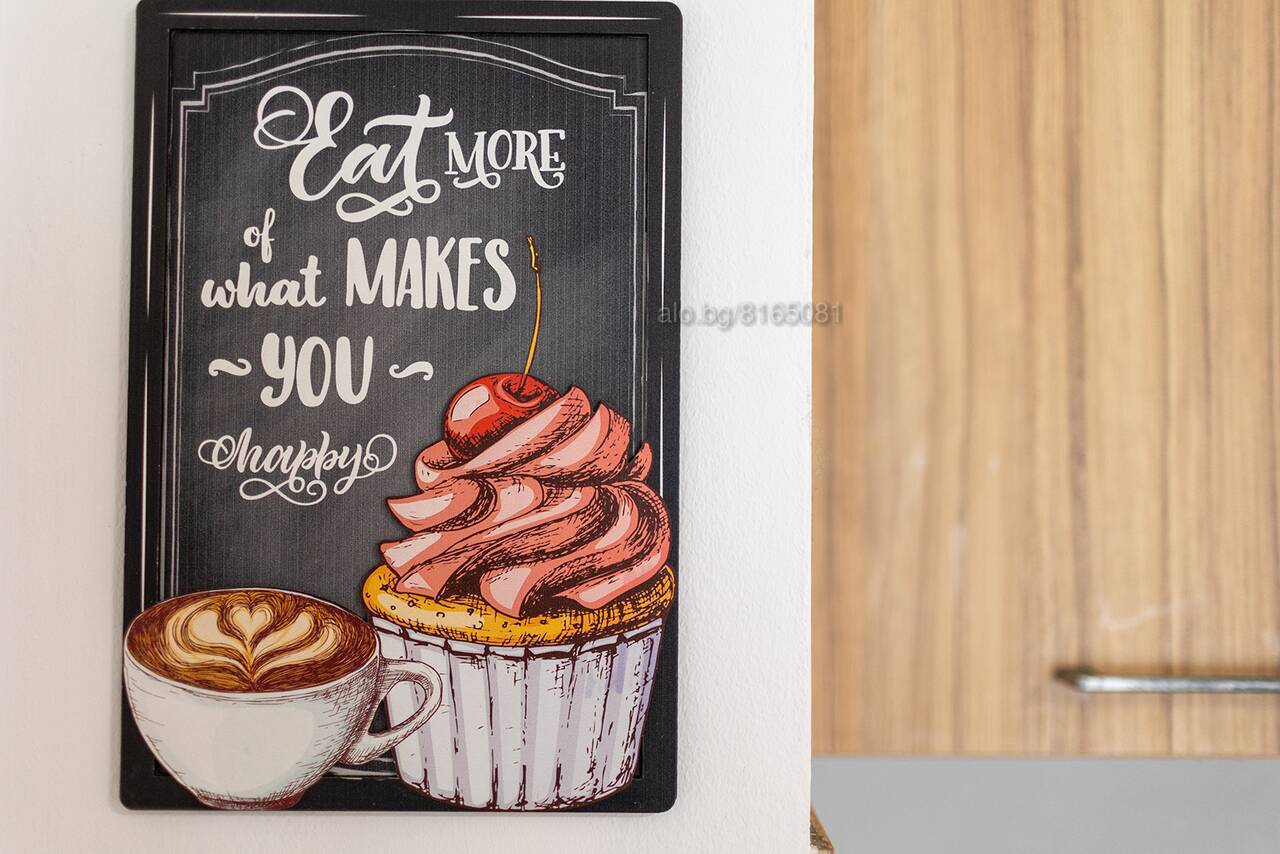 Eat MORE
of
what MAKES
~ YOU ~
happy
alo.bg/8165081